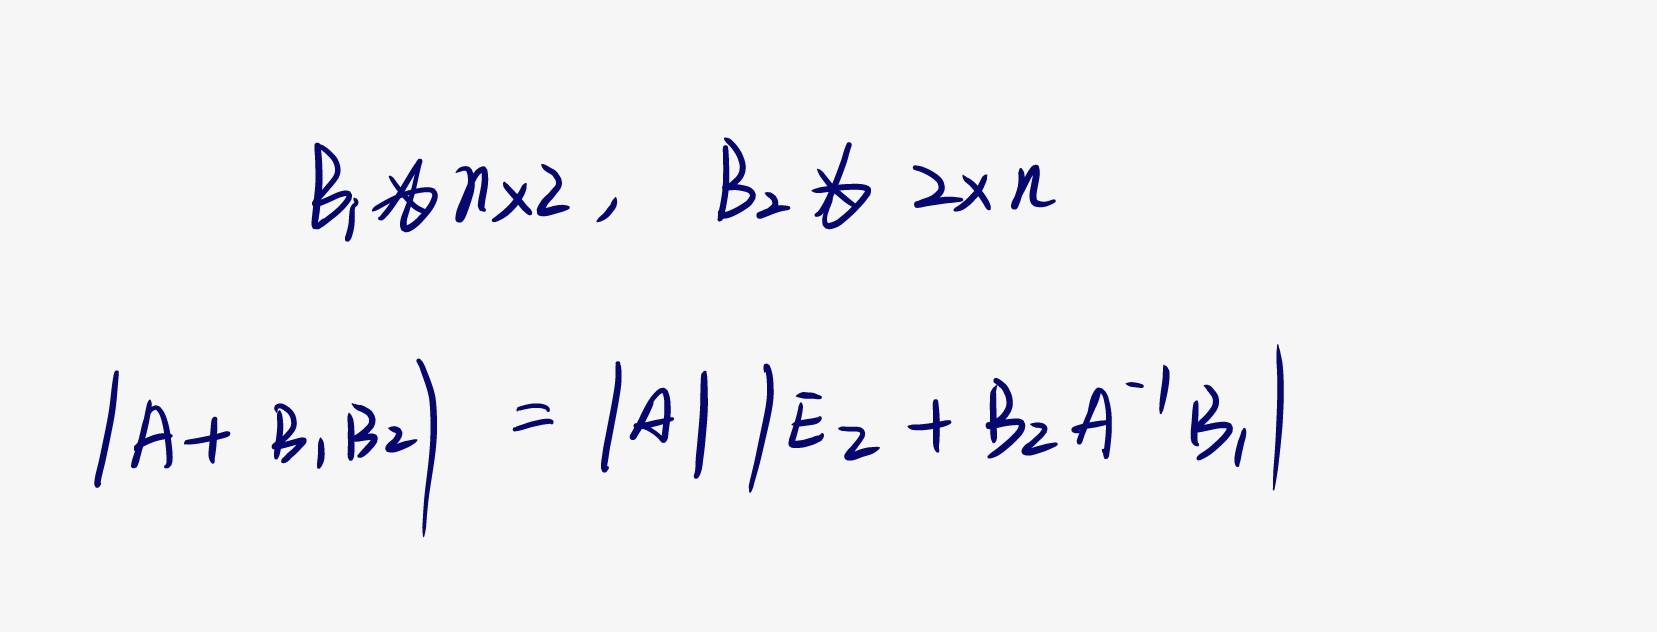 B₁为n×2, B₂为 2×n
|A+B₁B₂| = |A| |E₂+B₂A⁻¹B₁|